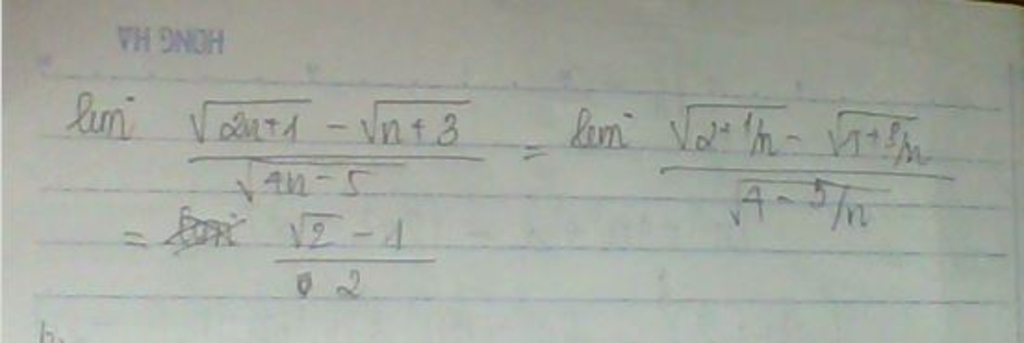 HONG HA
lim (√(2n+1) - √(n+3)) / √(4n-5) = lim (√(2+1/n) - √(1+3/n)) / √(4-5/n)
= (√2 - 1) / 2